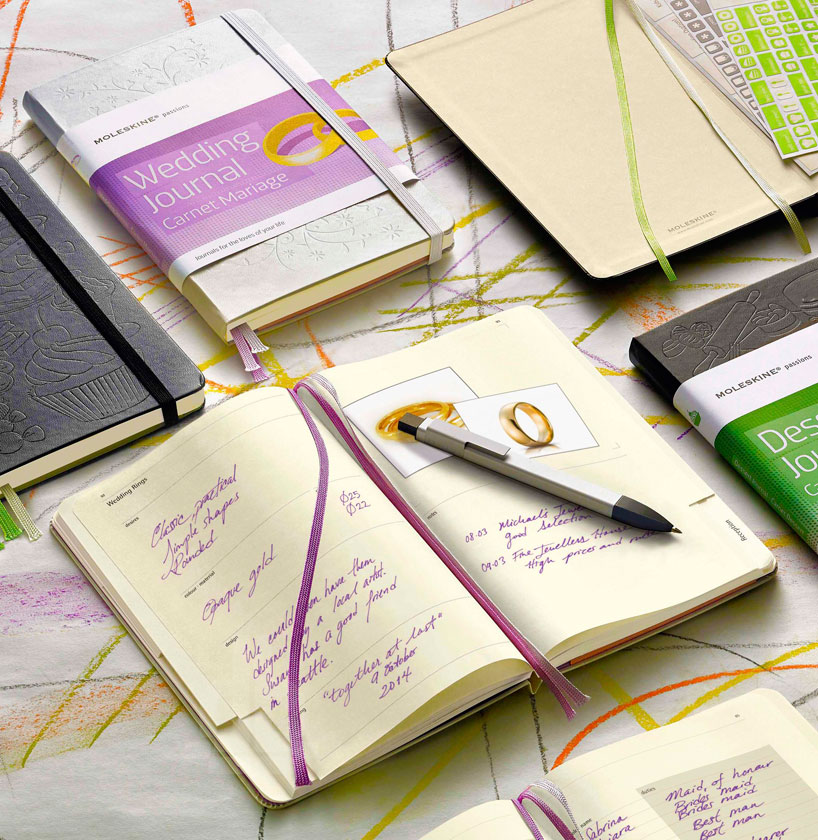 MOLESKINE® passions
Wedding
Journal
Carnet Mariage
Journals for the loves of your life
MOLESKINE®
MOLESKINE® passions
Wedding Rings
desires
Classic, practical
Simple shapes
Rounded
Ø25
Ø22
colour, material
Opaque gold
design
We could even have them
designed by a local artist.
has a good friend
in
"together at last"
9 October
2014
notes
08.03 Michaels
good selection
09.03 Fine Jewellers
High prices and
Reception
duties
Maid of honour
Brides maid
Brides maid
Best man
Best man
name
Sabrina